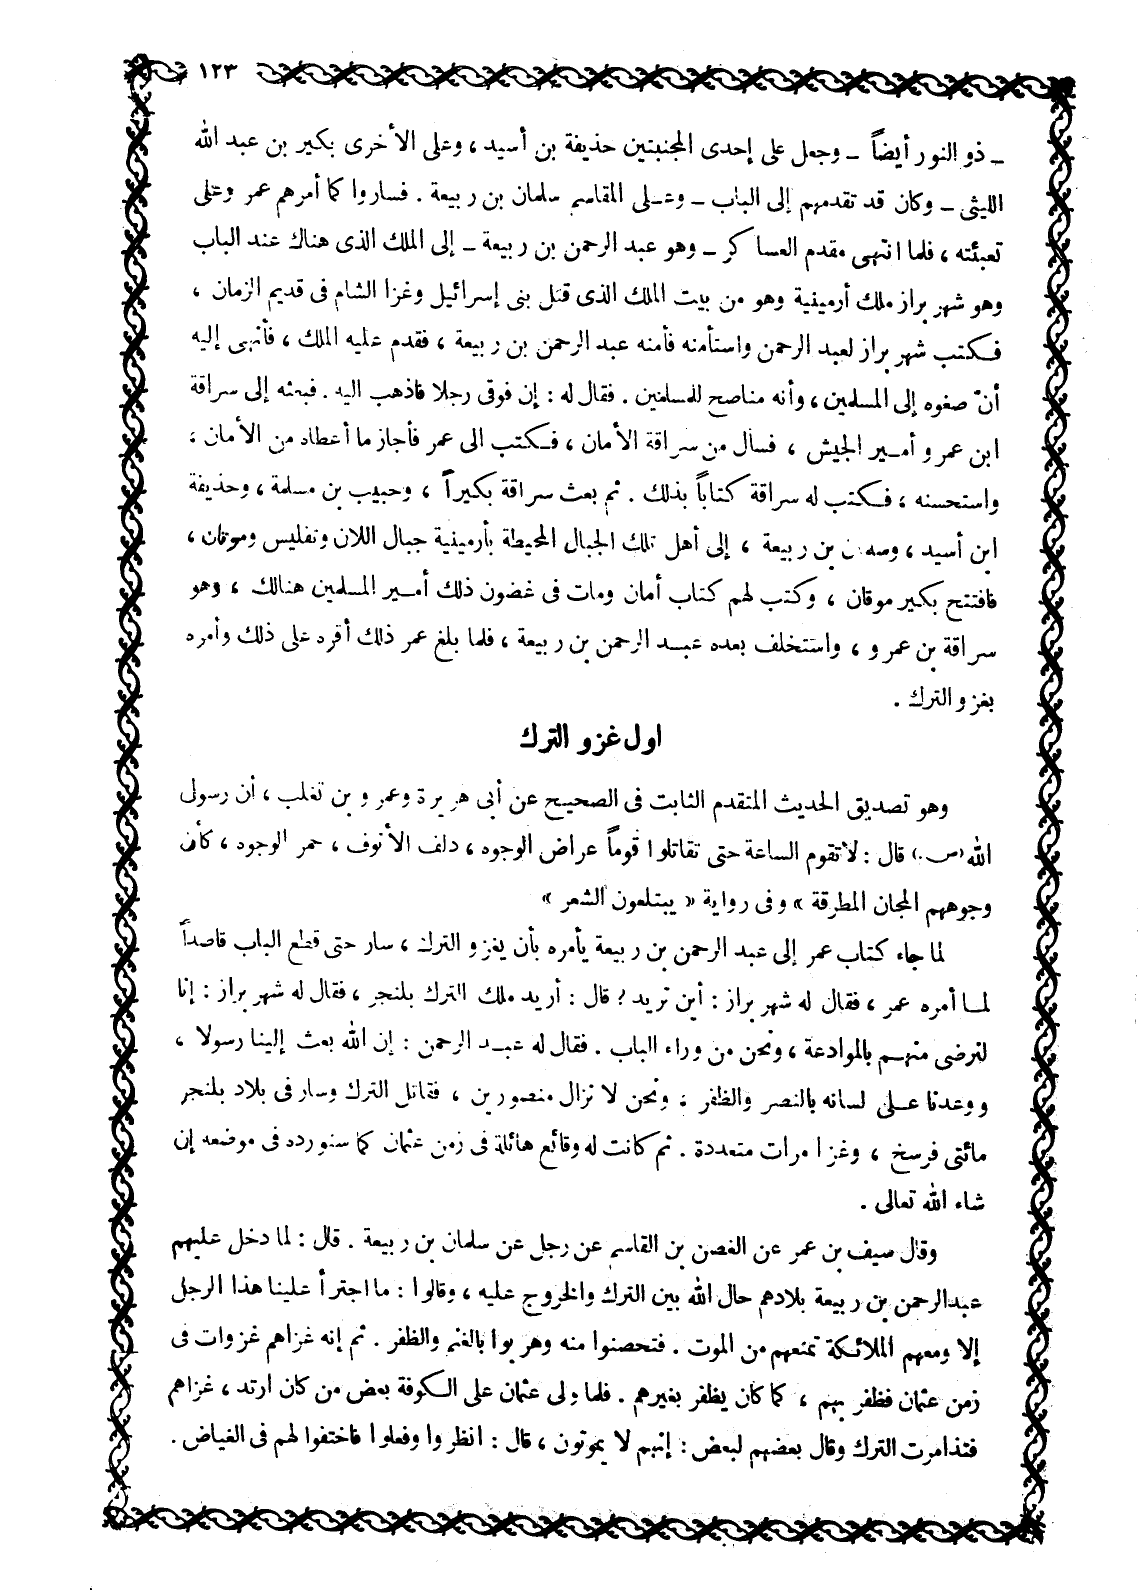 ١٢٣
ـ ذو النور أيضاً ـ وجعل على إحدى المجنبتين حذيفة بن أسيد ، وعلى الأخرى بكير بن عبد الله
الليثى ـ وكان قد تقدمهم إلى الباب ـ وعلى المقاسم سلمان بن ربيعة . فساروا كما أمرهم عمر وعلى
تعبئته ، فلما انتهى مقدم العساكر ـ وهو عبد الرحمن بن ربيعة ـ إلى الملك الذى هناك عند الباب
وهو شهر براز ملك أرمينية وهو من بيت الملك الذى قتل بنى إسرائيل وغزا الشام فى قديم الزمان ،
فكتب شهر براز لعبد الرحمن واستأمنه فأمنه عبد الرحمن بن ربيعة ، فقدم عليه الملك ، فأنهى إليه
أن صغوه إلى المسلمين ، وأنه مناصح للمسلمين . فقال له : إن فوقى رجلا فاذهب اليه . فبعثه إلى سراقة
ابن عمرو أمير الجيش ، فسأل من سراقة الأمان ، فكتب الى عمر فأجاز ما أعطاه من الأمان ،
واستحسنه ، فكتب له سراقة كتاباً بذلك . ثم بعث سراقة بكيراً ، وحبيب بن مسلمة ، وحذيفة
ابن أسيد ، وسلمان بن ربيعة ، إلى أهل تلك الجبال المحيطة بأرمينية جبال اللان وتفليس وموقان ،
فافتتح بكير موقان ، وكتب لهم كتاب أمان ومات فى غضون ذلك أمير المسلمين هنالك ، وهو
سراقة بن عمرو ، واستخلف بعده عبد الرحمن بن ربيعة ، فلما بلغ عمر ذلك أقره على ذلك وأمره
بغزو الترك .
اول غزو الترك
وهو تصديق الحديث المتقدم الثابت فى الصحيح عن أبى هريرة وعمرو بن تغلب ، أن رسول
الله (ص.) قال : لا تقوم الساعة حتى تقاتلوا قوماً عراض الوجوه ، دلف الأنوف ، حمر الوجوه ، كأن
وجوههم المجان المطرقة » وفى رواية « يبتلعون الشعر »
لما جاء كتاب عمر إلى عبد الرحمن بن ربيعة يأمره بأن يغزو الترك ، سار حتى قطع الباب قاصداً
لما أمره عمر ، فقال له شهر براز : أين تريد ؟ قال : أريد ملك الترك بلنجر ، فقال له شهر براز : إنا
لنرضى منهم بالموادعة ، ونحن من وراء الباب . فقال له عبد الرحمن : إن الله بعث إلينا رسولا ،
ووعدنا على لسانه بالنصر والظفر ، ونحن لا نزال منصورين ، فقاتل الترك وسار فى بلاد بلنجر
مائتى فرسخ ، وغزا مرات متعددة . ثم كانت له وقائع هائلة فى زمن عثمان كما سنورده فى موضعه إن
شاء الله تعالى .
وقال سيف بن عمر عن الغصن بن القاسم عن رجل عن سلمان بن ربيعة . قال : لما دخل عليهم
عبدالرحمن بن ربيعة بلادهم حال الله بين الترك والخروج عليه ، وقالوا : ما اجترأ علينا هذا الرجل
إلا ومعهم الملائكة تمنعهم من الموت . فتحصنوا منه وهربوا بالغنم والظفر . ثم إنه غزاهم غزوات فى
زمن عثمان فظفر بهم ، كما كان يظفر بغيرهم . فلما ولى عثمان على الكوفة بعض من كان ارتد ، غزاهم
فتذامرت الترك وقال بعضهم لبعض : إنهم لا يموتون ، قال : انظروا وفعلوا فاختفوا لهم فى الغياض .